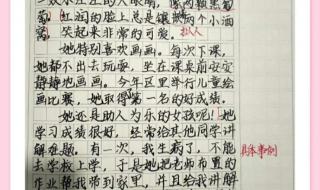 双水汪汪的大眼睛,像两颗黑葡
萄。红润的脸上总是镶嵌两个小酒
窝,笑起来非常的可爱。 拟人
她特别喜欢画画。每次下课,
她都不出去玩耍,坐在课桌前安安
静静地画画。今年区里举行儿童绘
画比赛,她取得第一名的好成绩。
她还是助人为乐的女孩呢!她
学习成绩很好,经常给其他同学讲
解难题。有一次,我生病了,不能 具体事例
去学校上学,于是她把老师布置的
作业帮我带到家里,并且给我讲解